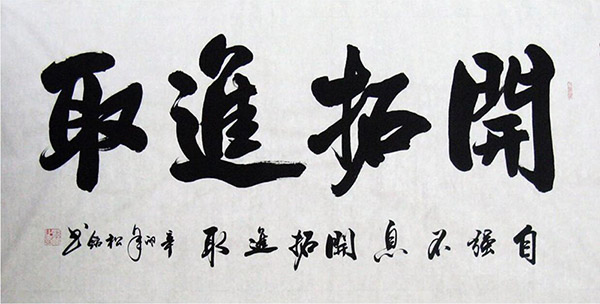 開拓進取
自强不息開拓進取辛卯年松銘书